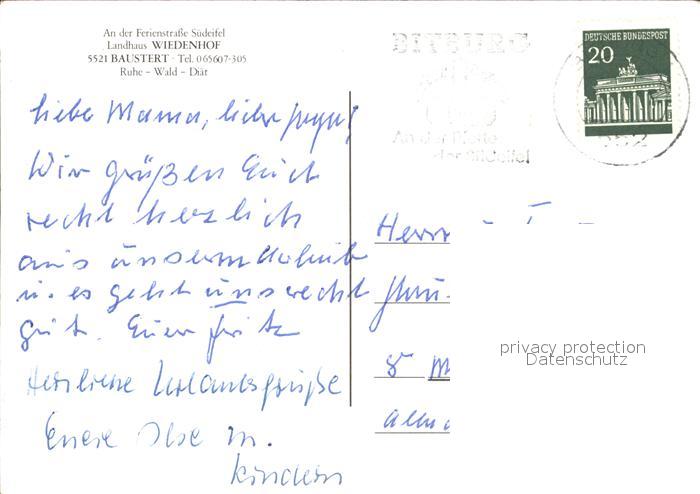 An der Ferienstraße Südeifel
Landhaus WIEDENHOF
5521 BAUSTERT · Tel. 065607-305
Ruhe – Wald – Diät
BITBURG
An der Pforte
der Südeifel
DEUTSCHE BUNDESPOST
20
Liebe Mama, lieber
Wir grüßen Euch
recht herzlich
aus unserem Urlaub
u. es geht uns recht
gut. Euer Fritz
Herzliche Urlaubsgrüße
Euere Ilse m.
Kindern
Herrn
8 M
privacy protection
Datenschutz